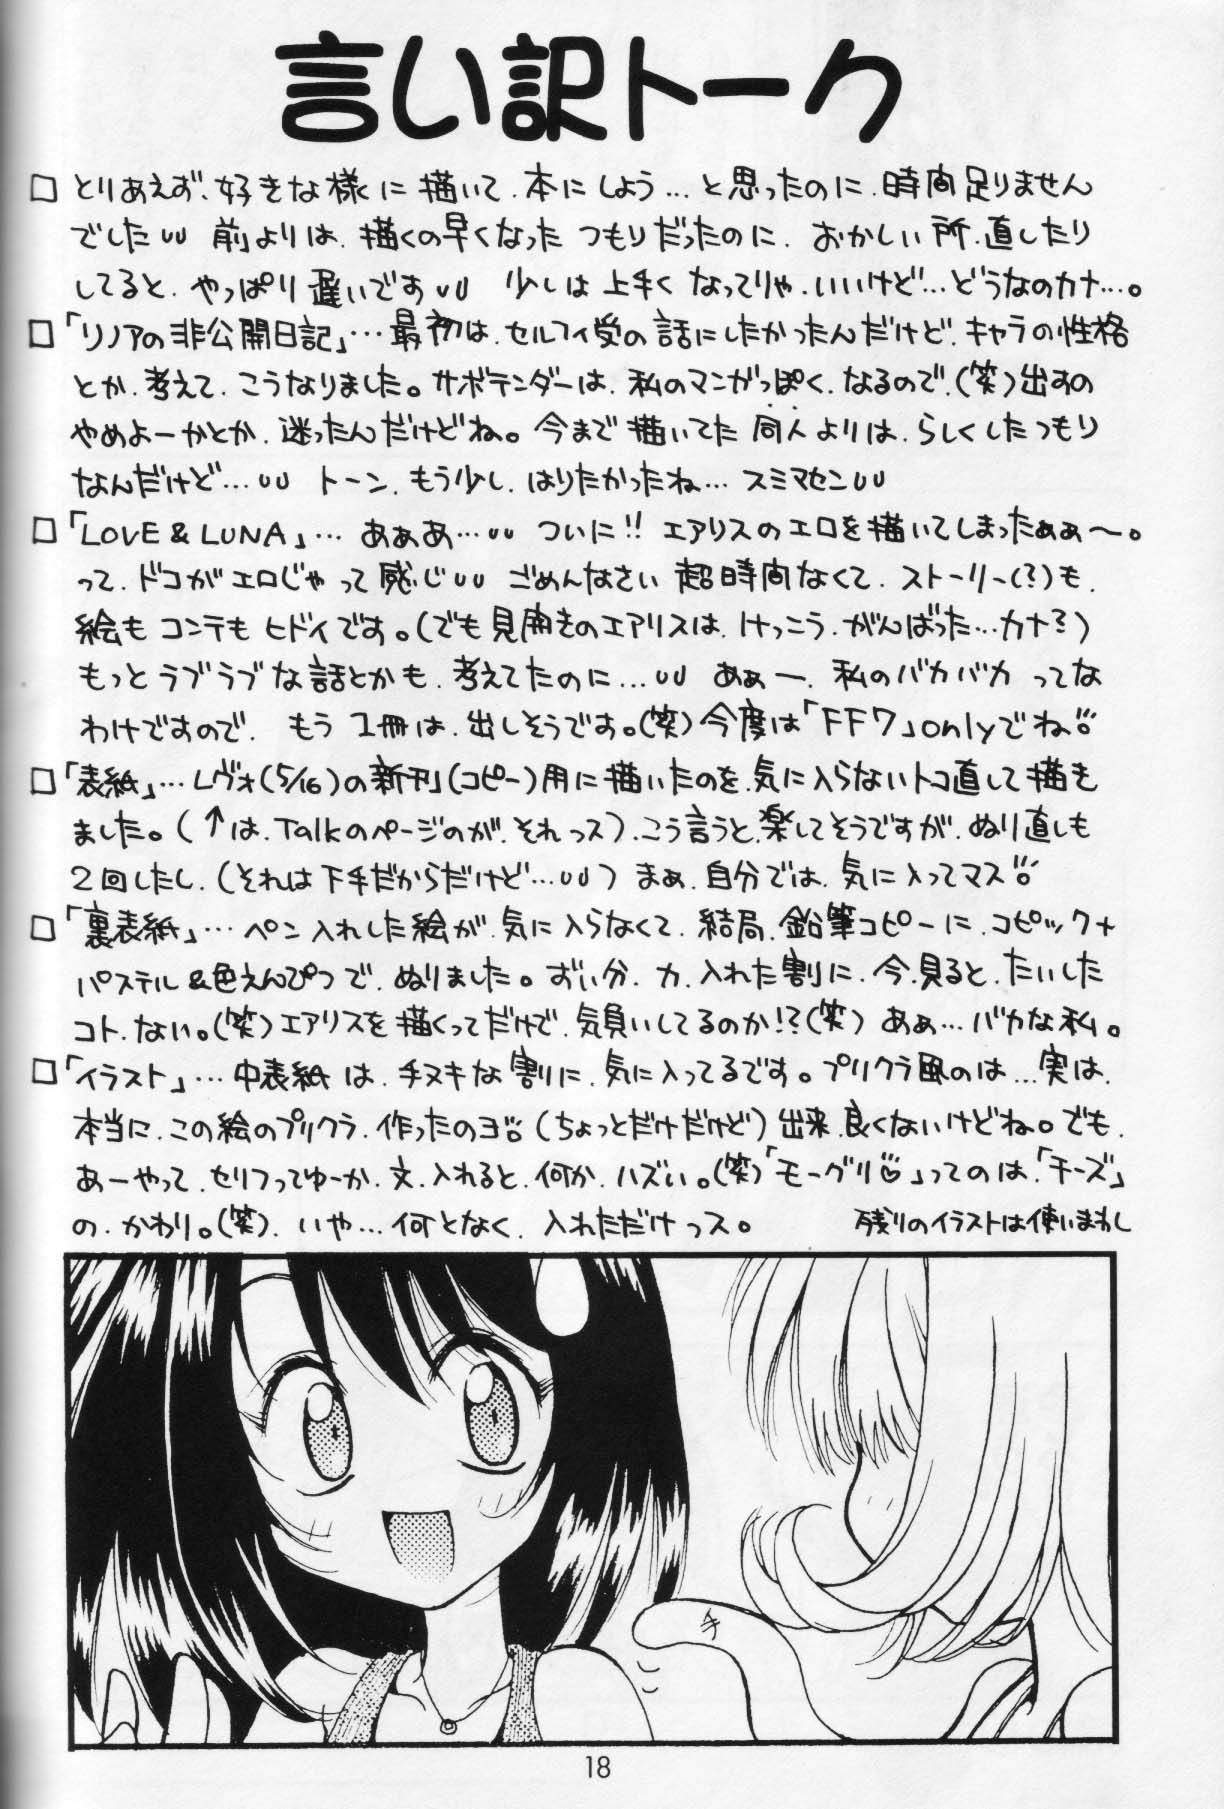 言い訳トーク
□ とりあえず、好きな様に描いて、本にしよう…と思ったのに、時間足りません
でしたUU 前よりは、描くの早くなった つもりだったのに、おかしい所、直したり
してると、やっぱり遅いですUU 少しは上手く なってりゃ、いいけど…どうなのカナ…。
□「リノアの非公開日記」…最初は、セルフィ受の話にしたかったんだけど、キャラの性格
とか、考えて、こうなりました。サボテンダーは、私のマンガっぽく、なるので、(笑)出すの
やめよーかとか、迷ったんだけどね。今まで描いてた同人よりは、らしくしたつもり
なんだけど…UU トーン、もう少し、はりたかったね…スミマセンUU
□「LOVE & LUNA」…あぁあ…UU ついに!! エアリスのエロを描いてしまったぁぁ〜。
って、ドコがエロじゃって感じUU ごめんなさい 超時間なくて、ストーリー(?)も、
絵も コンテも ヒドイです。(でも見開きのエアリスは、けっこう、がんばった…カナ?)
もっとラブラブな話とかも、考えてたのに…UU あぁー、私のバカバカ ってな
わけですので、もう 1冊は、出しそうです。(笑)今度は「FF7」onlyでね
□「表紙」…レヴォ(5/16)の新刊(コピー)用に描いたのを、気に入らないトコ直して描き
ました。(↑は、Talkのページのが、それっス)、こう言うと、楽してそうですが、ぬり直しも
2回したし、(それは下手だからだけど…UU) まぁ、自分では、気に入ってマス
□「裏表紙」…ペン入れした絵が、気に入らなくて、結局、鉛筆コピーに、コピック+
パステル&色えんぴつで、ぬりました。ずいぶん、力、入れた割に、今、見ると、たいした
コト、ない。(笑)エアリスを描くってだけで、気負いしてるのか!?(笑) あぁ…バカな私。
□「イラスト」…中表紙は、手ヌキな割に、気に入ってるです。プリクラ風のは…実は、
本当に、この絵のプリクラ、作ったのヨ(ちょっとだけだけど)出来、良くないけどね。でも、
あーやって、セリフってゆーか、文、入れると、何か、ハズい。(笑)「モーグリ♡」ってのは、「チーズ」
の、かわり。(笑)、いや…何となく、入れただけっス。
残りのイラストは使いまわし
チ
18